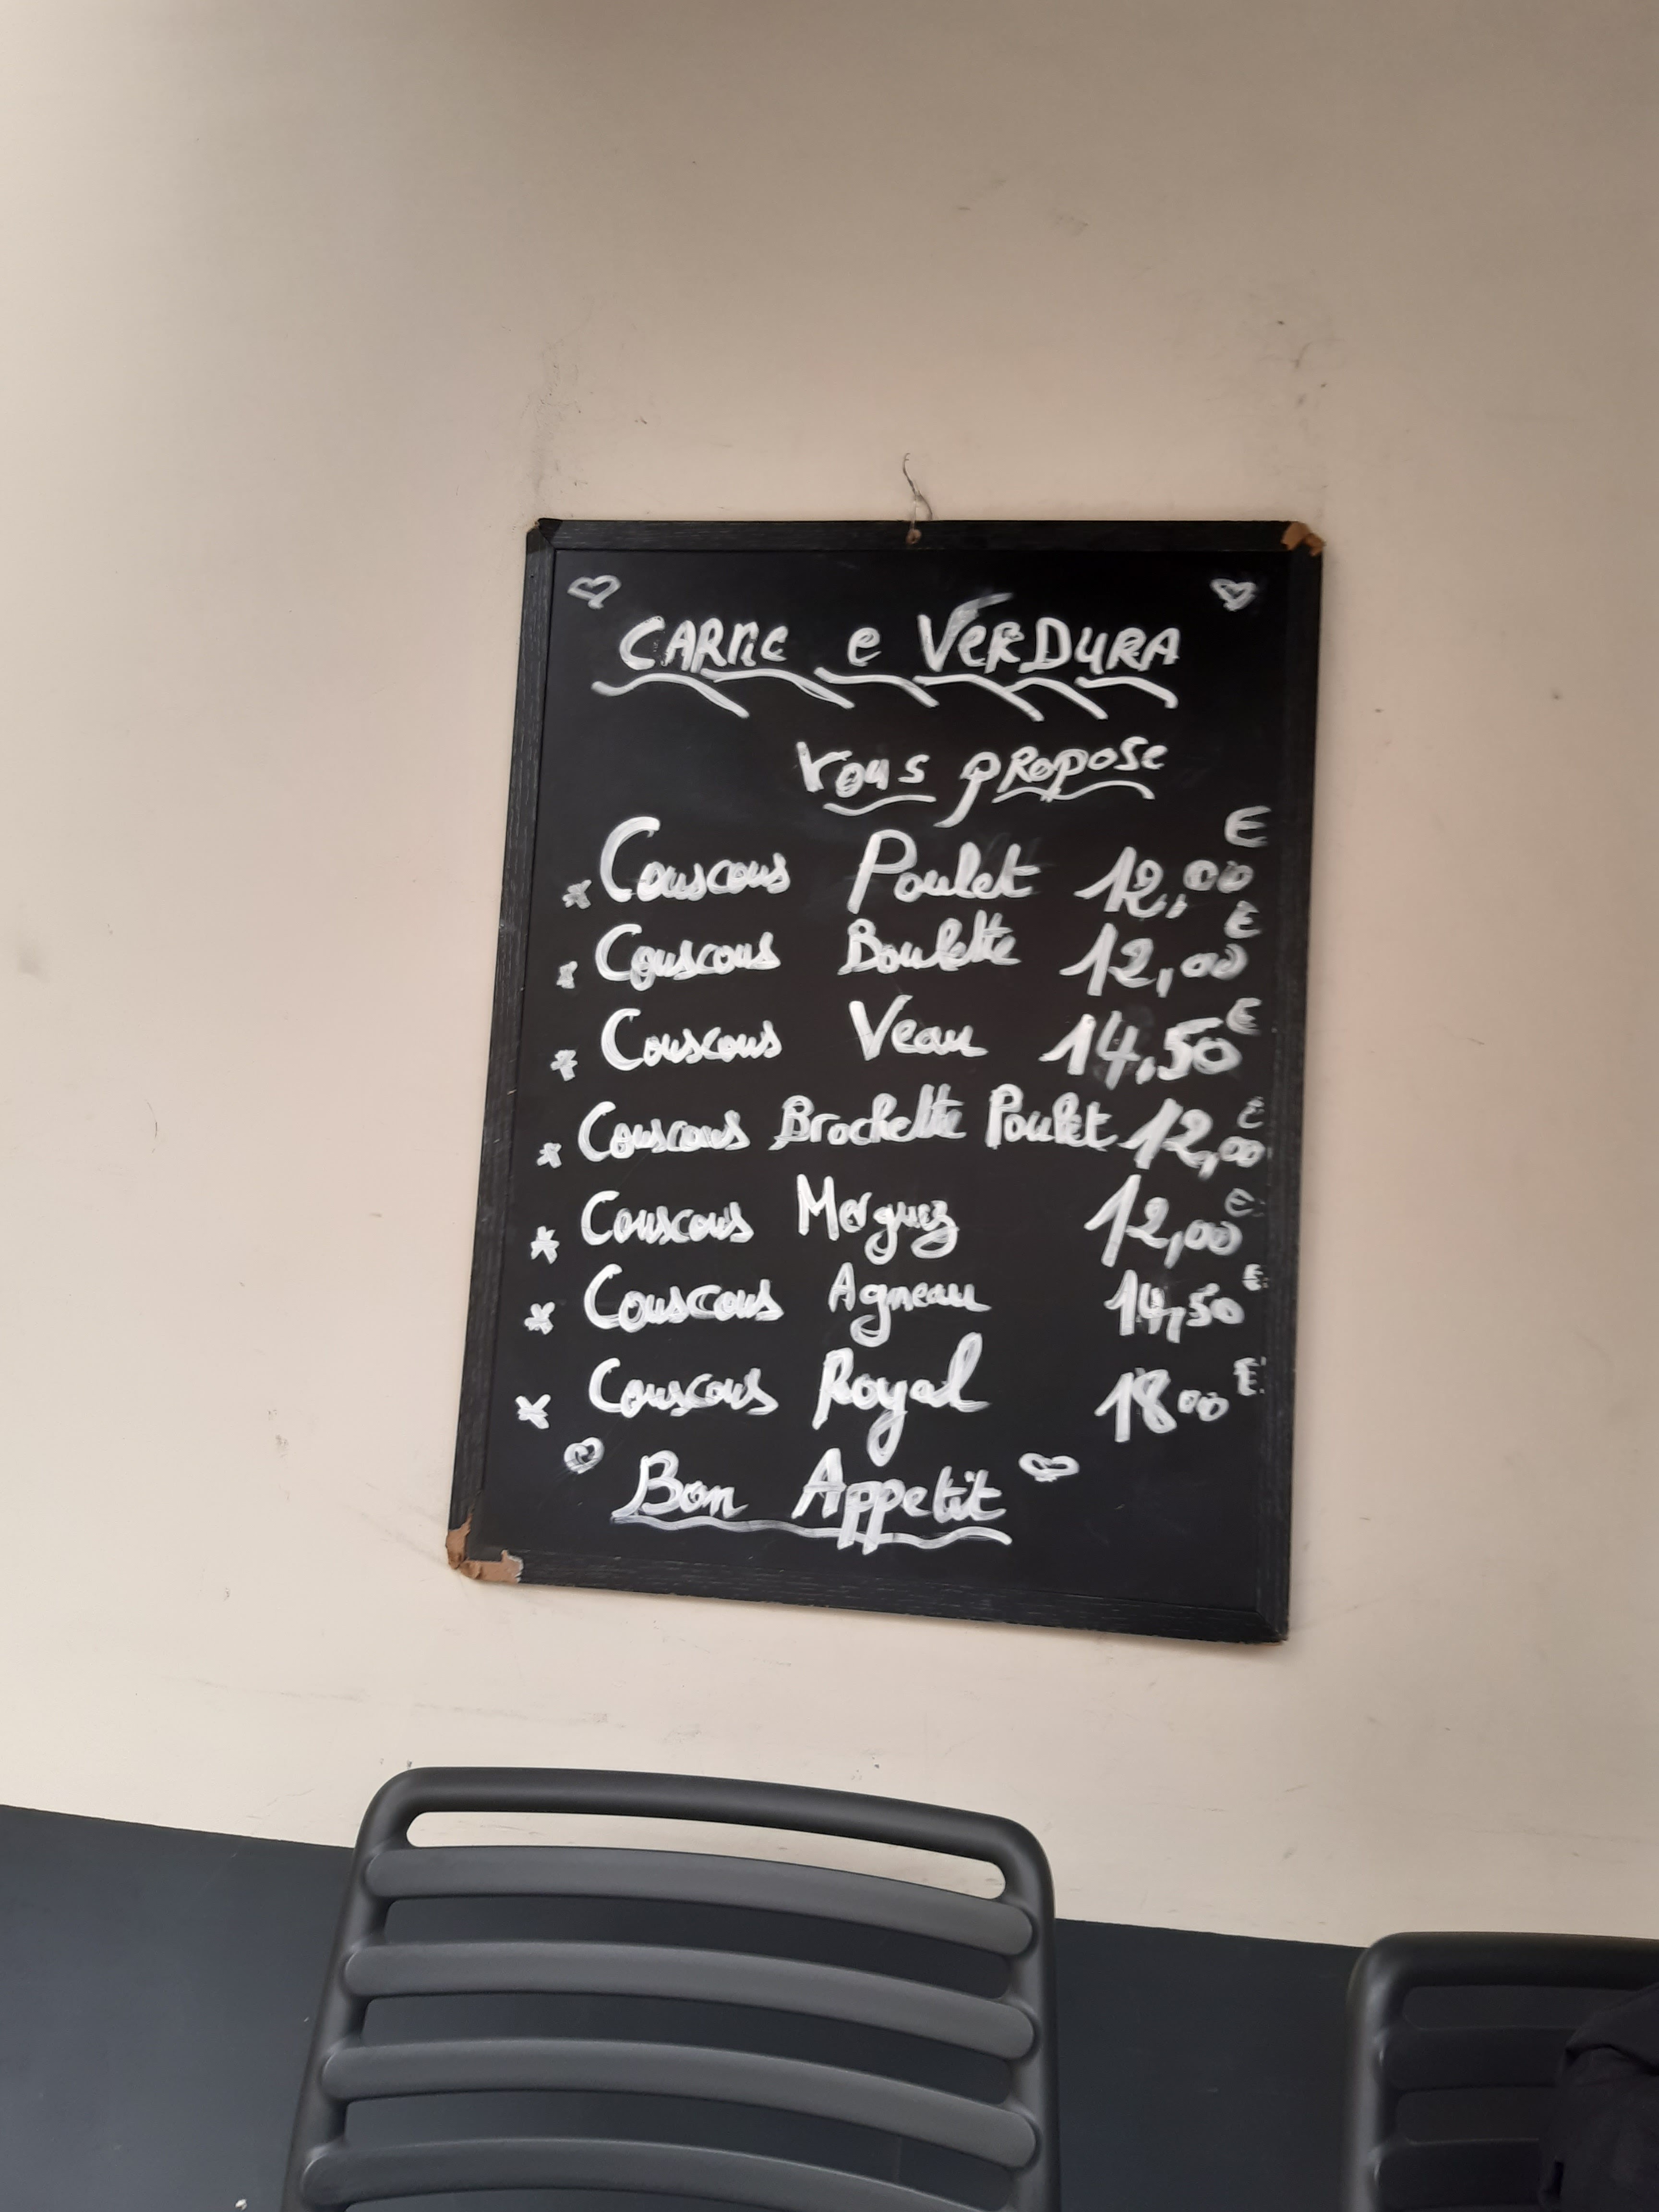 CARNe e VeRDuRA
Vous pRopose
* Couscous Poulet 12,00 €
* Couscous Boulette 12,00 €
* Couscous Veau 14,50 €
* Couscous Brochette Poulet 12,00 €
* Couscous Merguez 12,00 €
* Couscous Agneau 14,50 €
* Couscous Royal 18 00 €
Bon Appetit